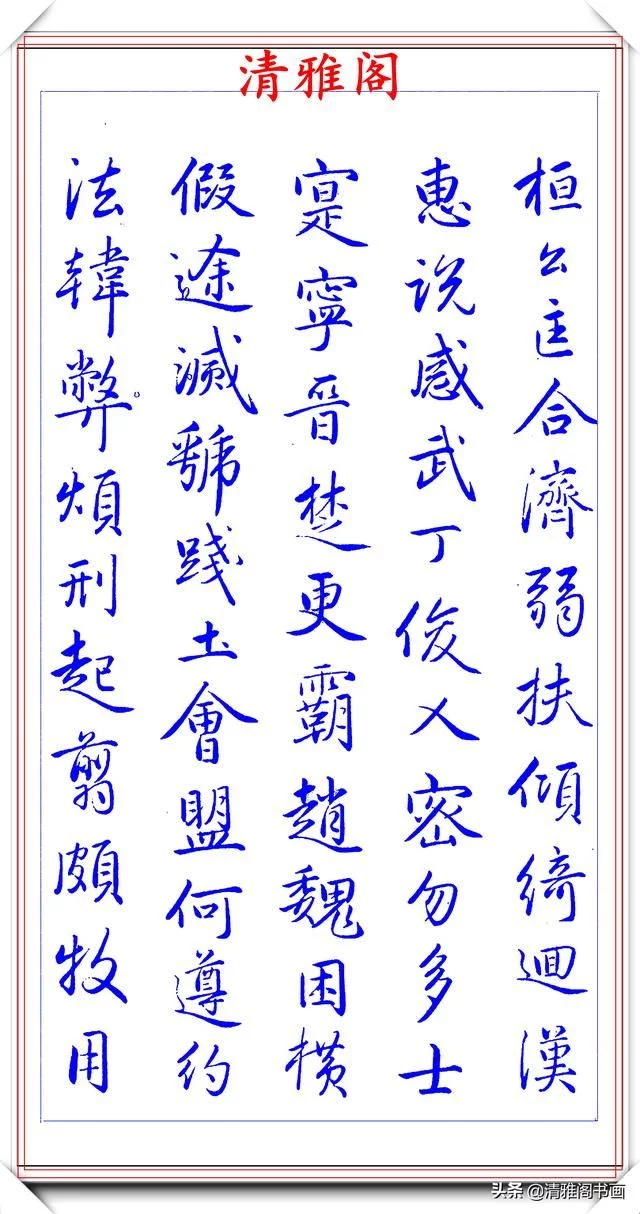 清雅阁
桓公匡合濟弱扶傾綺迴漢
惠说感武丁俊乂密勿多士
寔寧晉楚更霸趙魏困横
假途滅虢踐土會盟何遵约
法韓弊煩刑起翦頗牧用
头条 @清雅阁书画